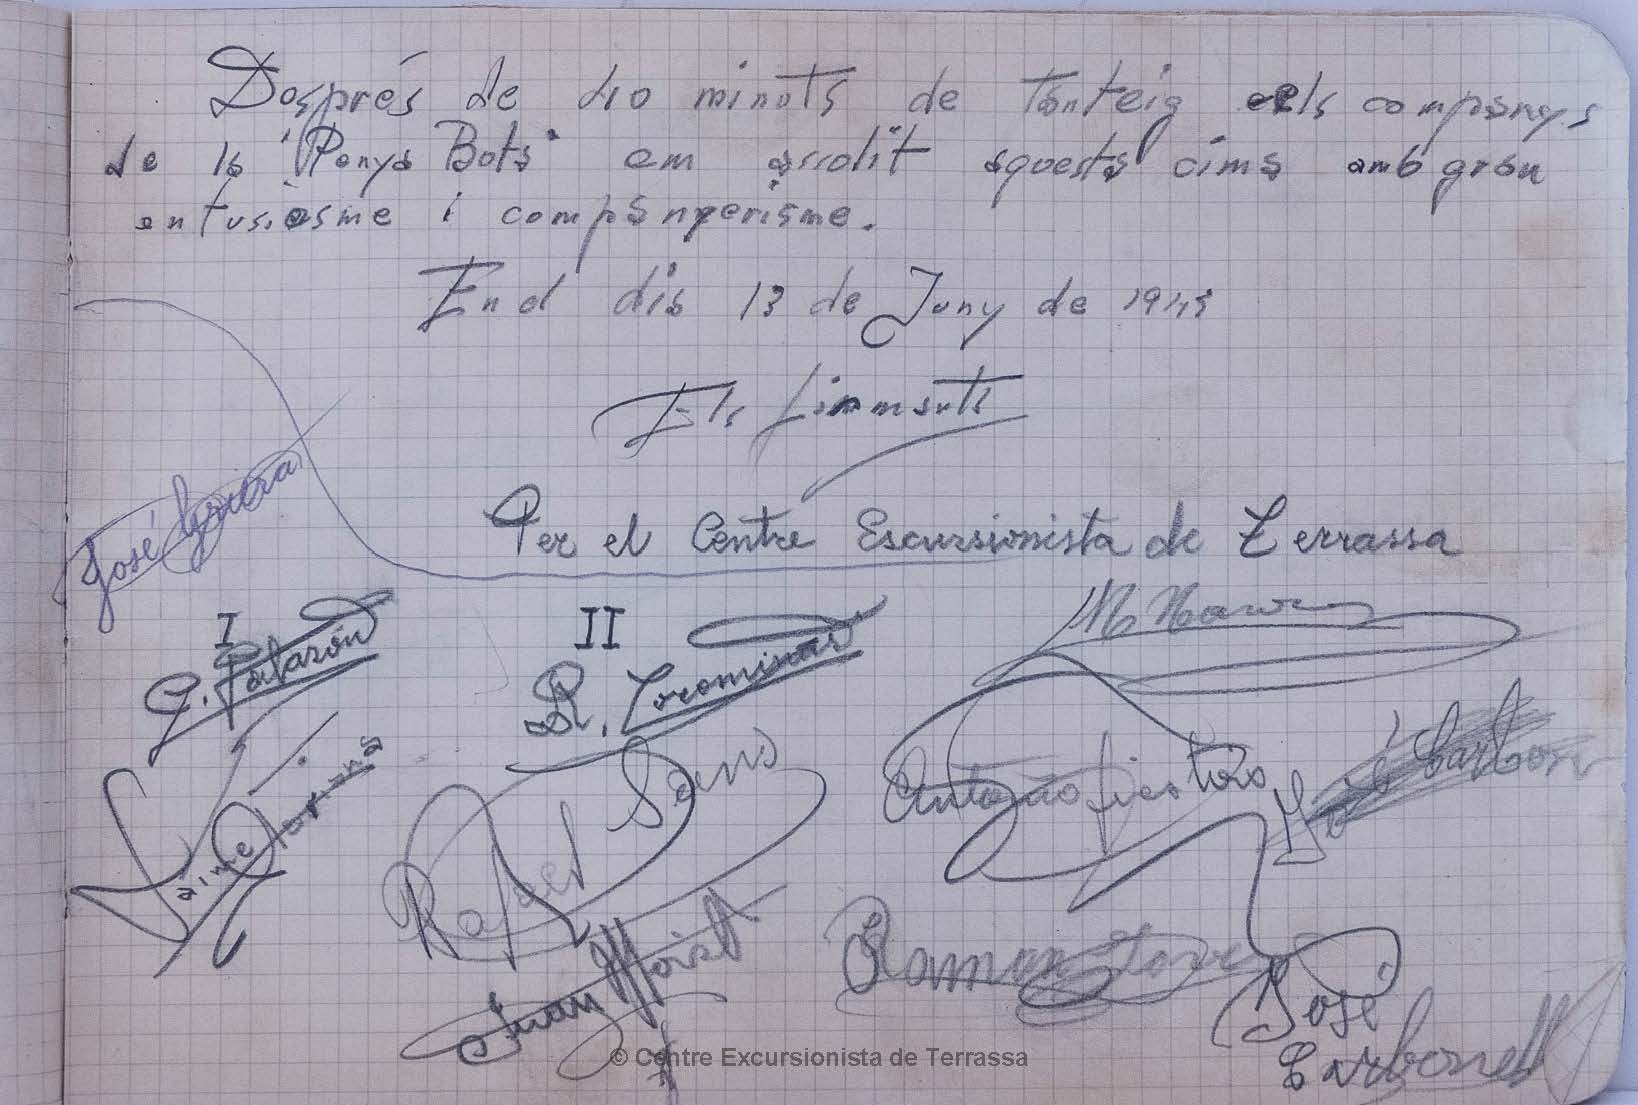 Després de 40 minuts de tanteig els companys
de la "Penya Bota" em assolit aquesta cima amb gran
entusiasme i companyerisme.
En el dia 13 de Juny de 1945
Els firmants
Per el Centre Escursionista de Terrassa
José
I
II
G. Patazón
R. Toromisas
M. Navarro
Jaime Torrens
Rafael Sans
Antonio
José Carbon
Juan Morist
Ramon Torre
José
Carbonell
© Centre Excursionista de Terrassa